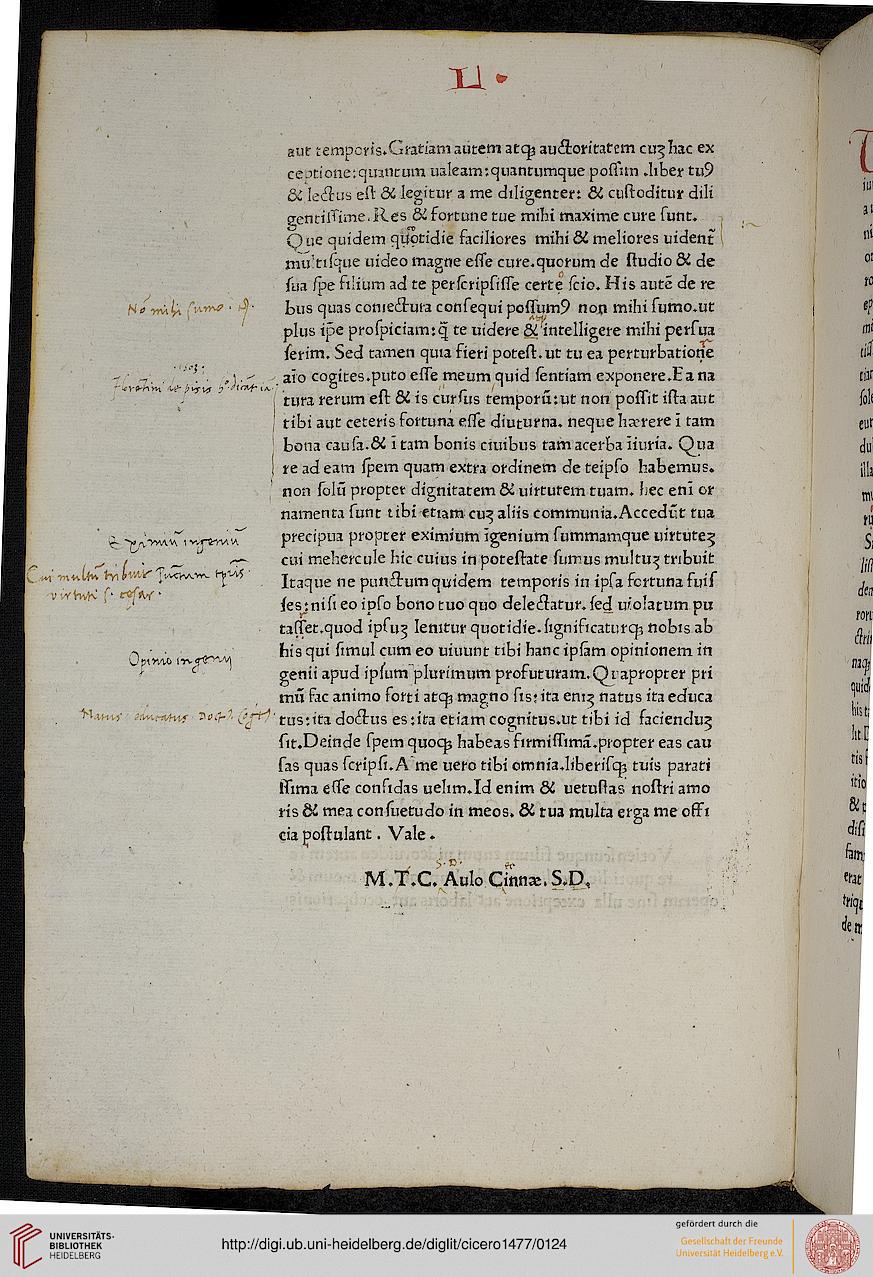 LI.
aut temporis. Gratiam autem atqꝫ auctoritatem cuꝫ hac ex
ceptione: quantum ualeam: quantumque possim . liber tuꝰ
& lectus est & legitur a me diligenter: & custoditur dili
gentissime. Res & fortune tue mihi maxime cure sunt.
Que quidem quotidie faciliores mihi & meliores uident̄
multisque uideo magne esse cure. quorum de studio & de
sua spe filium ad te perscripsisse certe scio. His autē de re
Nō mihi sumo
bus quas coniectura consequi possumꝰ non mihi sumo. ut
plus ip̄e prospiciam: q̄ te uidere & intelligere mihi persua
serim. Sed tamen quia fieri potest. ut tu ea perturbatione
1503
aīo cogites. puto esse meum quid sentiam exponere. Ea na
tura rerum est & is cursus temporū: ut non possit ista aut
tibi aut ceteris fortuna esse diuturna. neque hærere ī tam
bona causa. & ī tam bonis ciuibus tam acerba īiuria. Qua
re ad eam spem quam extra ordinem de teipso habemus.
non solū propter dignitatem & uirtutem tuam. hec enī or
namenta sunt tibi etiam cuꝫ aliis communia. Accedūt tua
Eximiū ingeniū
precipua propter eximium īgenium summamque uirtuteꝫ
cui mehercule hic cuius in potestate sumus multuꝫ tribuit
Cui multū tribuit
Itaque ne punctum quidem temporis in ipsa fortuna fuis
virtuti s. cesar.
ses: nisi eo ipso bono tuo quo delectatur. sed uiolatum pu
tasset. quod ipsuꝫ lenitur quotidie. significaturqꝫ nobis ab
his qui simul cum eo uiuunt tibi hanc ipsam opinionem in
Opinio ingenij
genii apud ipsum plurimum profuturam. Quapropter pri
mū fac animo forti atqꝫ magno sis: ita eniꝫ natus ita educa
Natus educatus
tus: ita doctus es: ita etiam cognitus. ut tibi id faciendūꝫ
sit. Deinde spem quoqꝫ habeas firmissimā. propter eas cau
sas quas scripsi. A me uero tibi omnia. liberisqꝫ tuis parati
ssima esse confidas uelim. Id enim & uetustas nostri amo
ris & mea consuetudo in meos. & tua multa erga me offi
cia postulant . Vale .
M.T.C. Aulo Cinnæ. S.D.
UNIVERSITÄTS-
BIBLIOTHEK
HEIDELBERG
http://digi.ub.uni-heidelberg.de/diglit/cicero1477/0124
gefördert durch die
Gesellschaft der Freunde
Universität Heidelberg e.V.